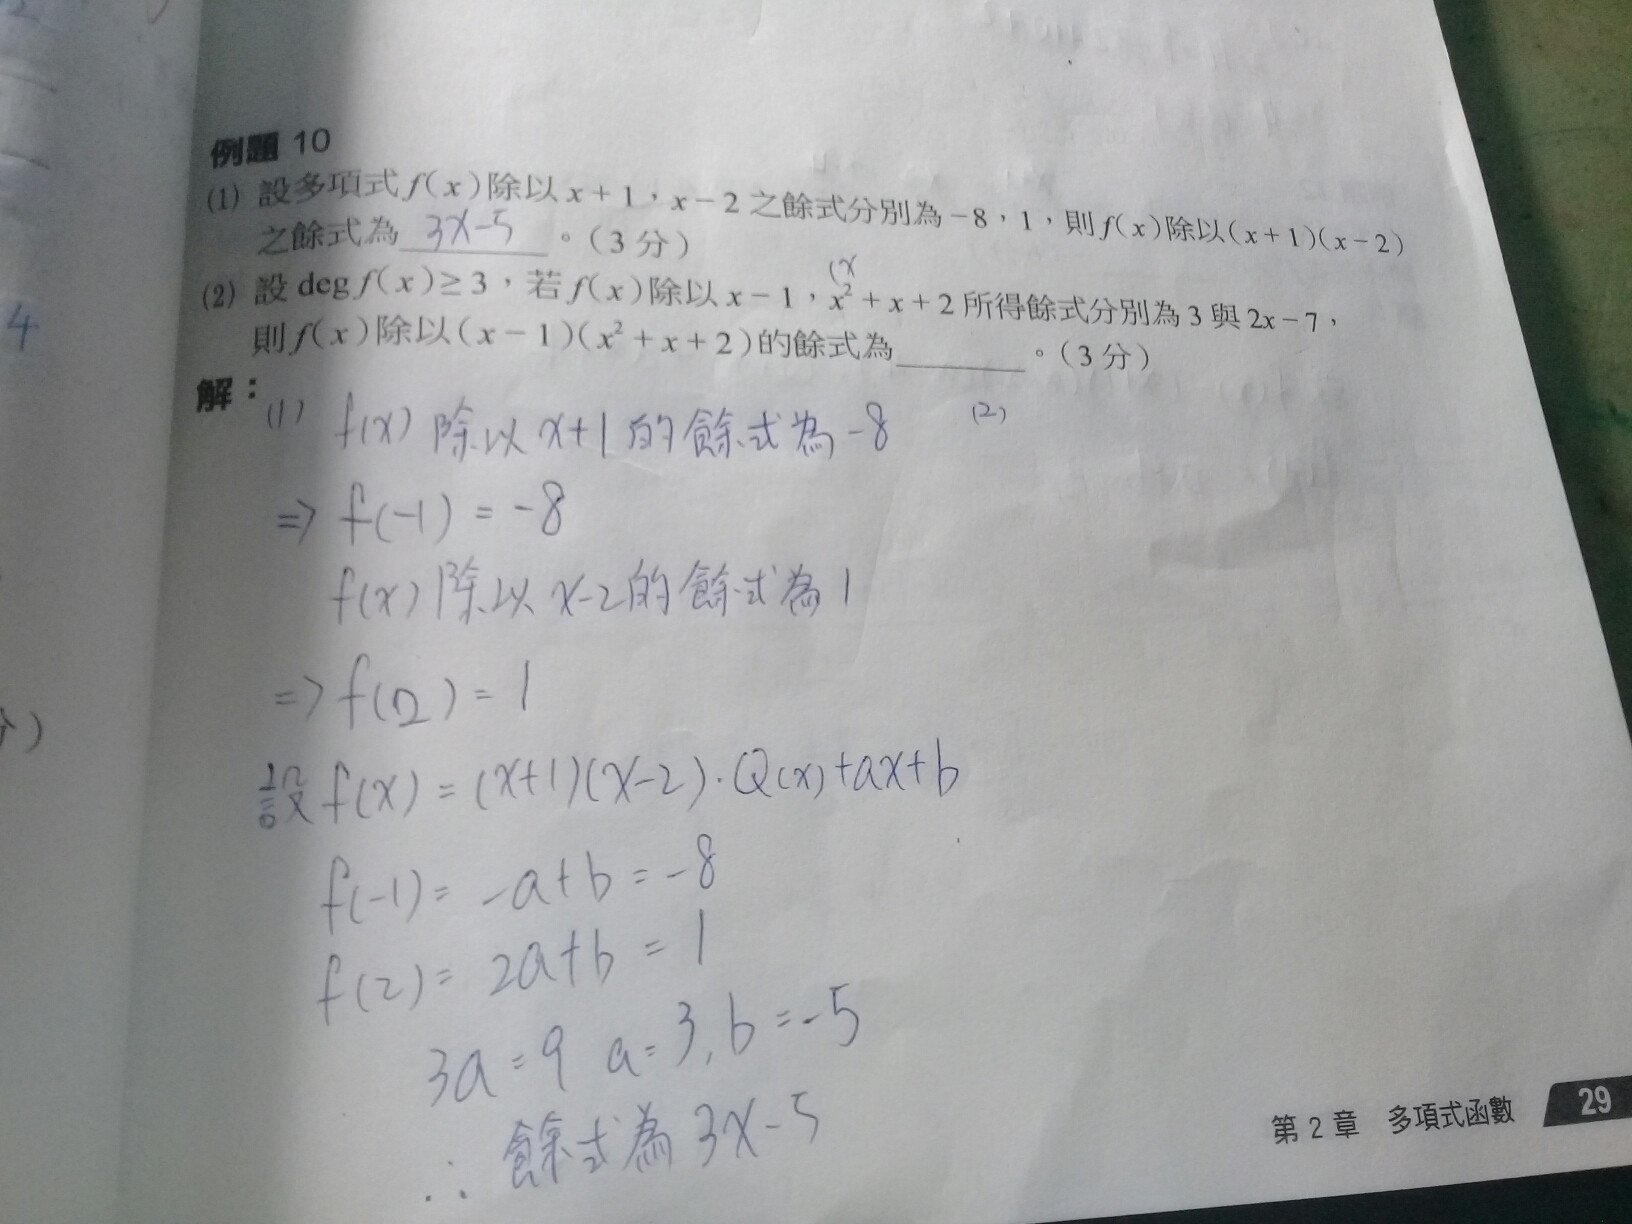 例題 10
(1) 設多項式 f(x) 除以 x+1，x-2 之餘式分別為 -8，1，則 f(x) 除以 (x+1)(x-2)
之餘式為 3x-5 。(3 分)
(x
(2) 設 deg f(x) ≥ 3，若 f(x) 除以 x-1，x²+x+2 所得餘式分別為 3 與 2x-7，
則 f(x) 除以 (x-1)(x²+x+2) 的餘式為______。(3 分)
4
解：
(1) f(x) 除以 x+1 的餘式為 -8
(2)
⇒ f(-1) = -8
f(x) 除以 x-2 的餘式為 1
=> f(2) = 1
設 f(x) = (x+1)(x-2)·Q(x)+ax+b
f(-1) = -a+b = -8
f(2) = 2a+b = 1
3a=9 a=3, b=-5
∴ 餘式為 3x-5
第 2 章 多項式函數 29